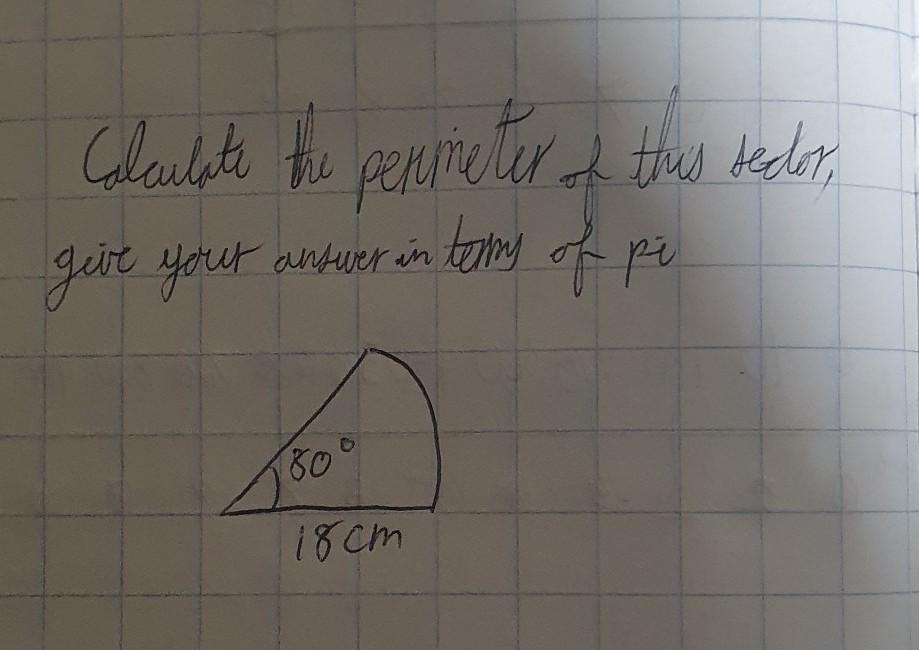 Calculate the perimeter of this sector,
give your answer in terms of pi
80°
18cm